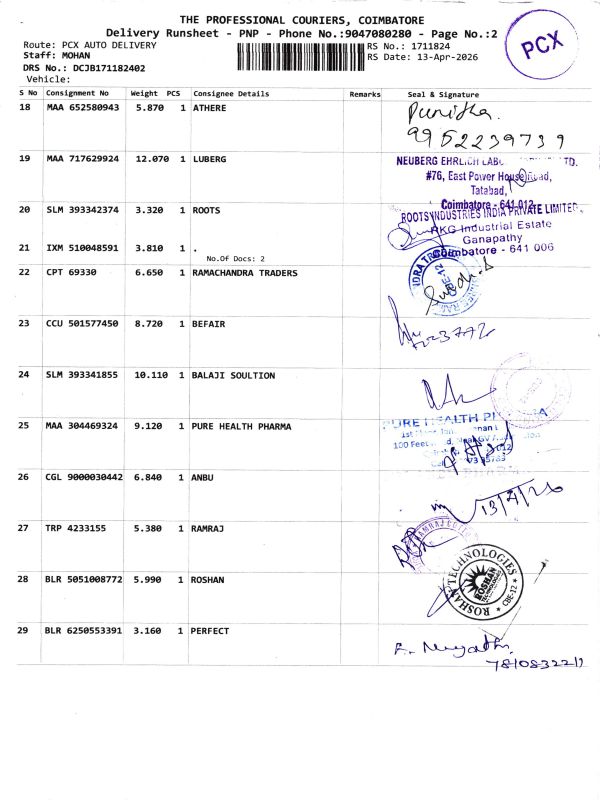 THE PROFESSIONAL COURIERS, COIMBATORE
Delivery Runsheet - PNP - Phone No.:9047080280 - Page No.:2
Route: PCX AUTO DELIVERY
RS No.: 1711824
Staff: MOHAN
RS Date: 13-Apr-2026
DRS No.: DCJB171182402
Vehicle:
PCX
S No Consignment No Weight PCS Consignee Details Remarks Seal & Signature
18 MAA 652580943 5.870 1 ATHERE
Punitha.
9952239739
19 MAA 717629924 12.070 1 LUBERG
NEUBERG EHRLICH LAB TD.
#76, East Power House Road,
Tatabad,
Coimbatore - 641 012
20 SLM 393342374 3.320 1 ROOTS
ROOTS INDUSTRIES INDIA PRIVATE LIMITED
RKG Industrial Estate
Ganapathy
Coimbatore - 641 006
21 IXM 510048591 3.810 1 .
No.Of Docs: 2
22 CPT 69330 6.650 1 RAMACHANDRA TRADERS
23 CCU 501577450 8.720 1 BEFAIR
24 SLM 393341855 10.110 1 BALAJI SOULTION
25 MAA 304469324 9.120 1 PURE HEALTH PHARMA
PURE HEALTH
100 Feet
26 CGL 9000030442 6.840 1 ANBU
13/4/26
27 TRP 4233155 5.380 1 RAMRAJ
RAMRAJ
28 BLR 5051008772 5.990 1 ROSHAN
ROSHAN TECHNOLOGIES
ROSHAN
CBE-12
29 BLR 6250553391 3.160 1 PERFECT